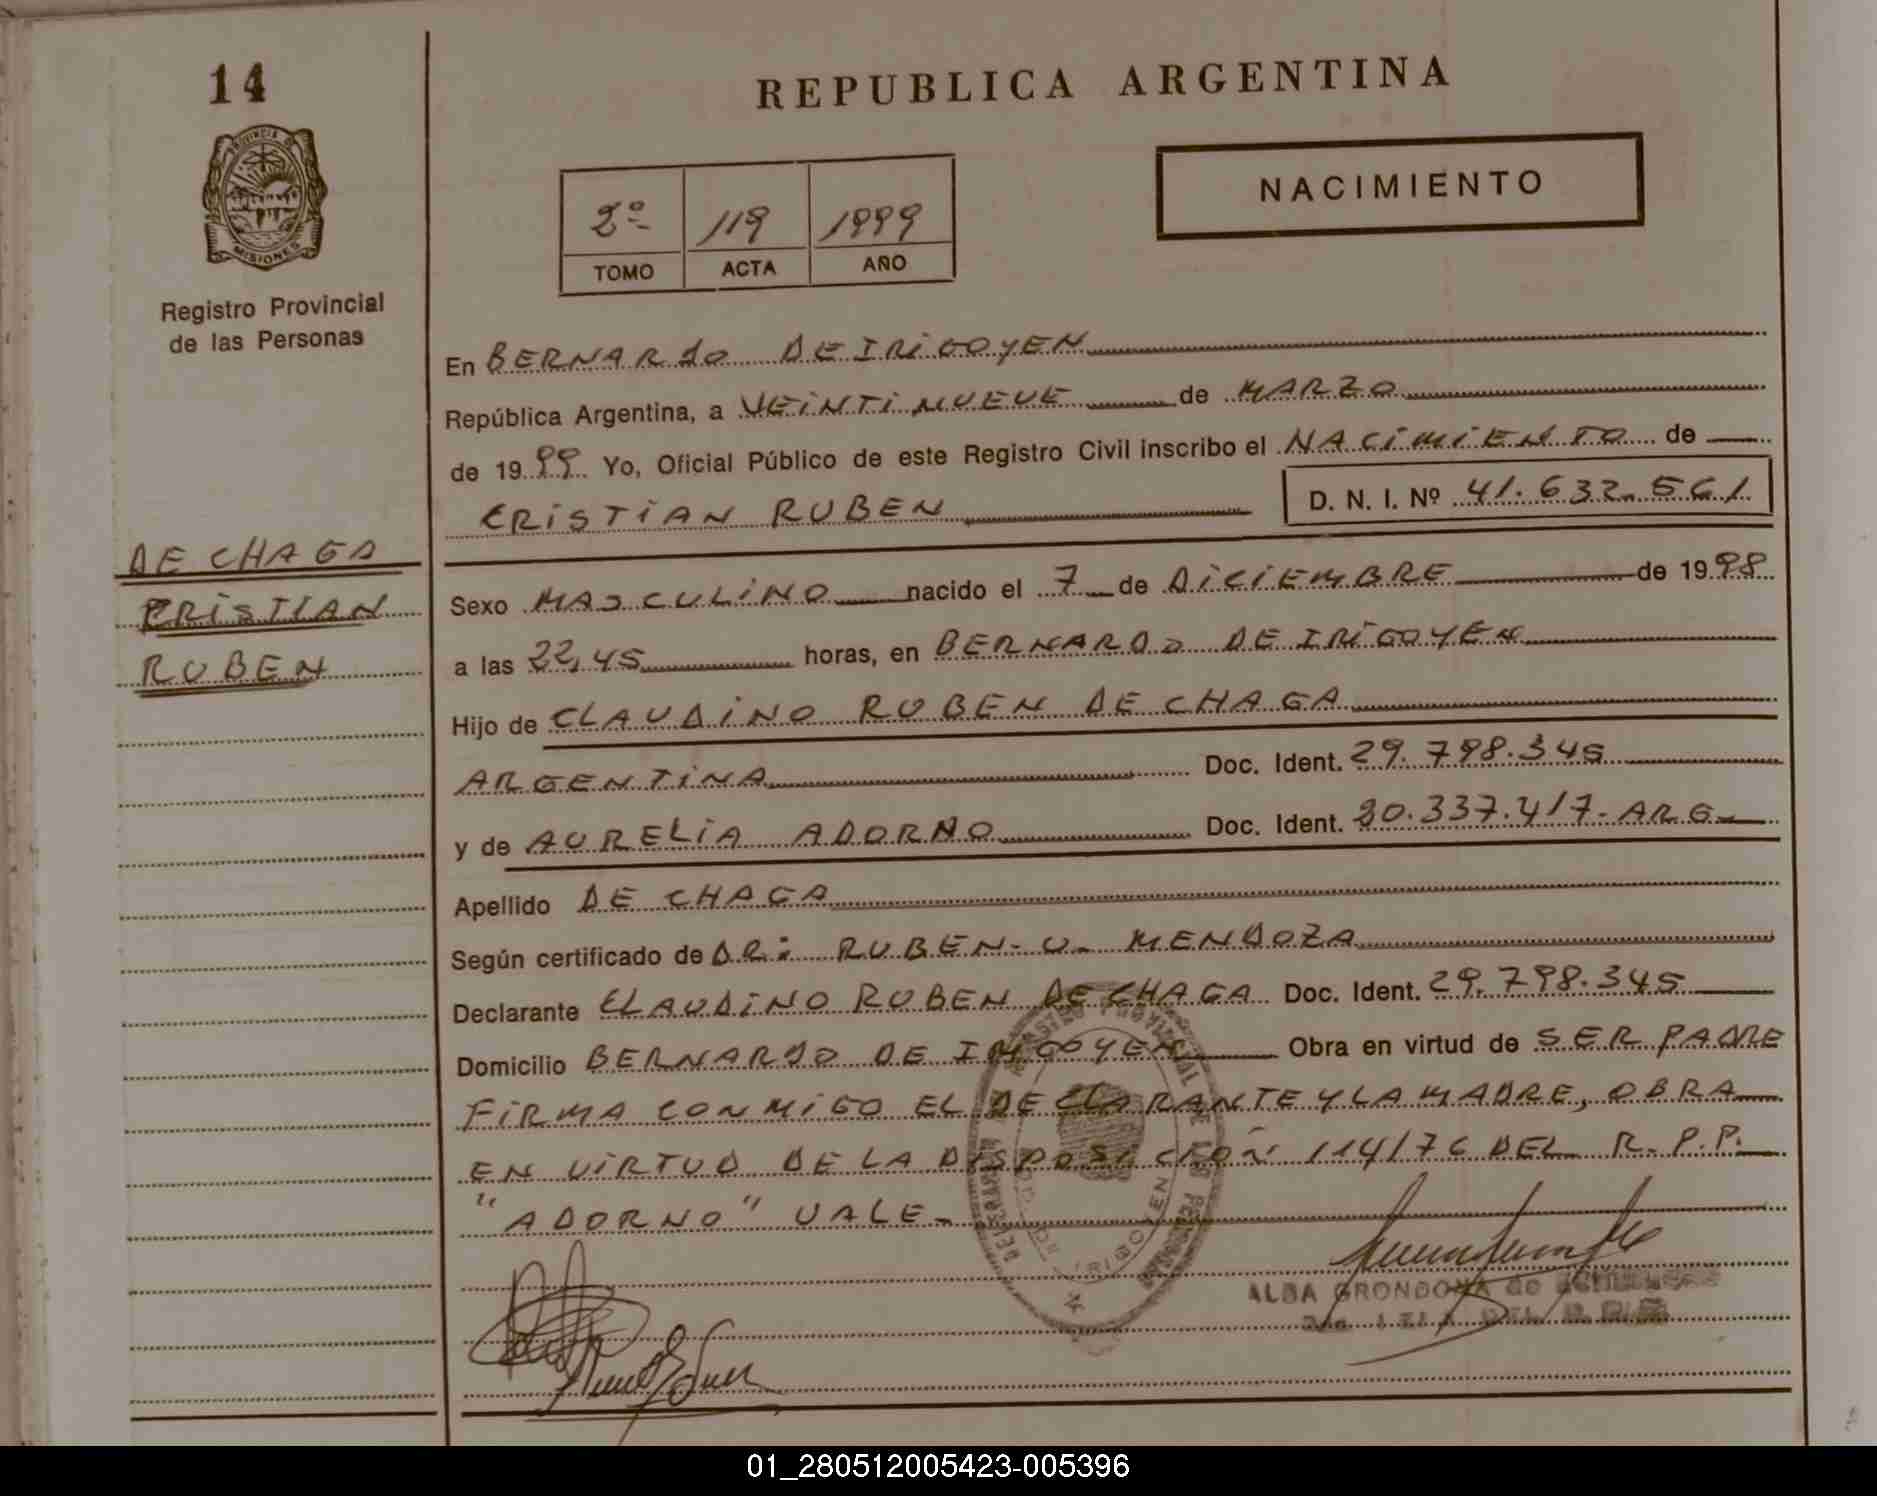 14
PROVINCIA DE
MISIONES
Registro Provincial
de las Personas
DE CHAGA
CRISTIAN
RUBEN
REPUBLICA ARGENTINA
NACIMIENTO
2º 119 1999
TOMO ACTA AÑO
En BERNARDO DE IRIGOYEN
República Argentina, a VEINTINUEVE de MARZO
de 1999 Yo, Oficial Público de este Registro Civil inscribo el NACIMIENTO de
CRISTIAN RUBEN D. N. I. Nº 41.632.561
Sexo MASCULINO nacido el 7 de DICIEMBRE de 1998
a las 22,45 horas, en BERNARDO DE IRIGOYEN
Hijo de CLAUDINO RUBEN DE CHAGA
ARGENTINA Doc. Ident. 29.798.345
y de AURELIA ADORNO Doc. Ident. 30.337.417-ARG-
Apellido DE CHAGA
Según certificado de DR: RUBEN-O- MENDOZA
Declarante CLAUDINO RUBEN DE CHAGA Doc. Ident. 29.798.345
Domicilio BERNARDO DE IRIGOYEN Obra en virtud de SER PADRE
FIRMA CONMIGO EL DECLARANTE Y LA MADRE, OBRA
EN VIRTUD DE LA DISPOSICION 114/76 DEL R.P.P.
"ADORNO" VALE-
ALBA GRONDONA de
01_280512005423-005396